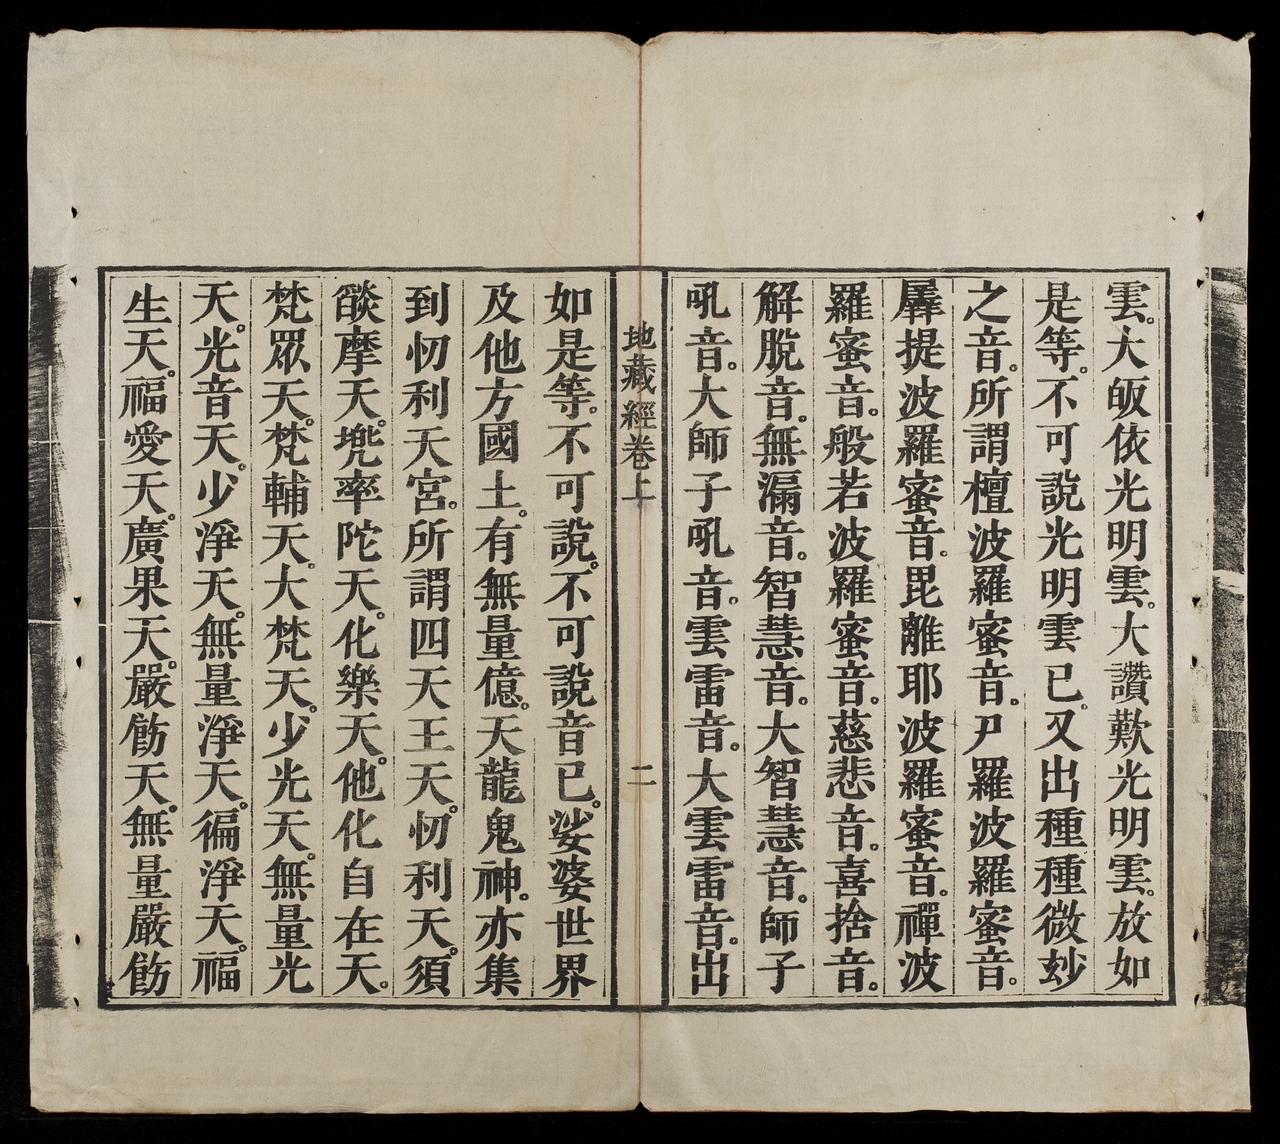 雲。大皈依光明雲。大讚歎光明雲。放如
是等。不可說光明雲已。又出種種微妙
之音。所謂檀波羅蜜音。尸羅波羅蜜音。
羼提波羅蜜音。毘離耶波羅蜜音。禪波
羅蜜音。般若波羅蜜音。慈悲音。喜捨音。
解脫音。無漏音。智慧音。大智慧音。師子
吼音。大師子吼音。雲雷音。大雲雷音。出
地藏經卷上 二
如是等。不可說。不可說音已。娑婆世界
及他方國土。有無量億。天龍鬼神。亦集
到忉利天宮。所謂四天王天。忉利天。須
燄摩天。兠率陀天。化樂天。他化自在天。
梵眾天。梵輔天。大梵天。少光天。無量光
天。光音天。少淨天。無量淨天。徧淨天。福
生天。福愛天。廣果天。嚴飭天。無量嚴飭